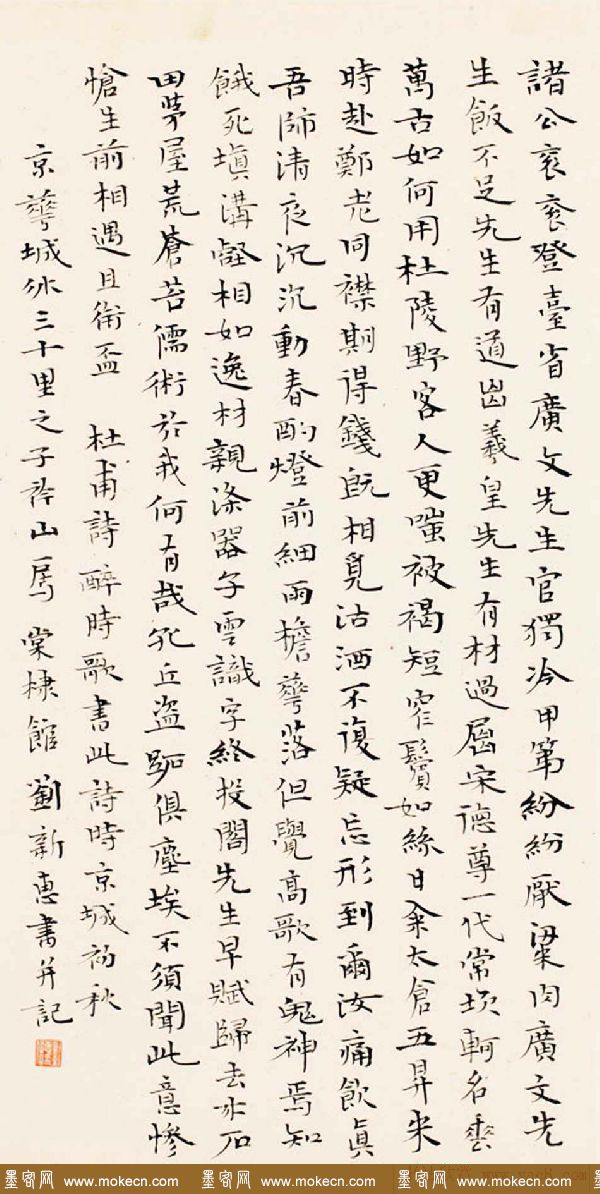 諸公衮衮登臺省廣文先生官獨冷甲第紛紛厭粱肉廣文先
生飯不足先生有道出羲皇先生有材過屈宋德尊一代常坎軻名垂
萬古如何用杜陵野客人更嗤被褐短窄鬢如絲日籴太倉五昇米
時赴鄭老同襟期得錢既相覓沽酒不復疑忘形到爾汝痛飲真
吾師清夜沉沉動春酌燈前細雨檐華落但覺高歌有鬼神焉知
餓死填溝壑相如逸材親滌器子雲識字終投閣先生早賦歸去來石
田茅屋荒蒼苔儒術於我何有哉孔丘盜跖俱塵埃不須聞此意慘
愴生前相遇且銜盃 杜甫詩醉時歌書此詩時京城初秋
京華城外三十里之子衿山房 棠棣館 劉新惠書并記
墨客网 www.mokecn.com 墨客网 www.mokecn.com 墨客网 www.mokecn.com